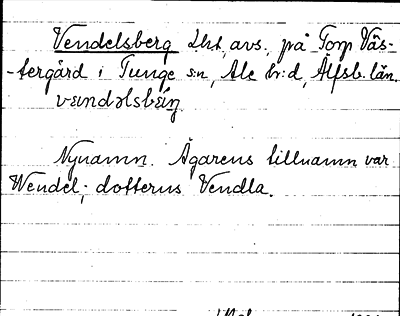 Vendelsberg Lht, avs. på Torp Väs-
-tergård i Tunge s:n, Ale h:d, Älfsb. län.
Nynamn. Ägarens tillnamn var
Wendel; dotterns Vendla.